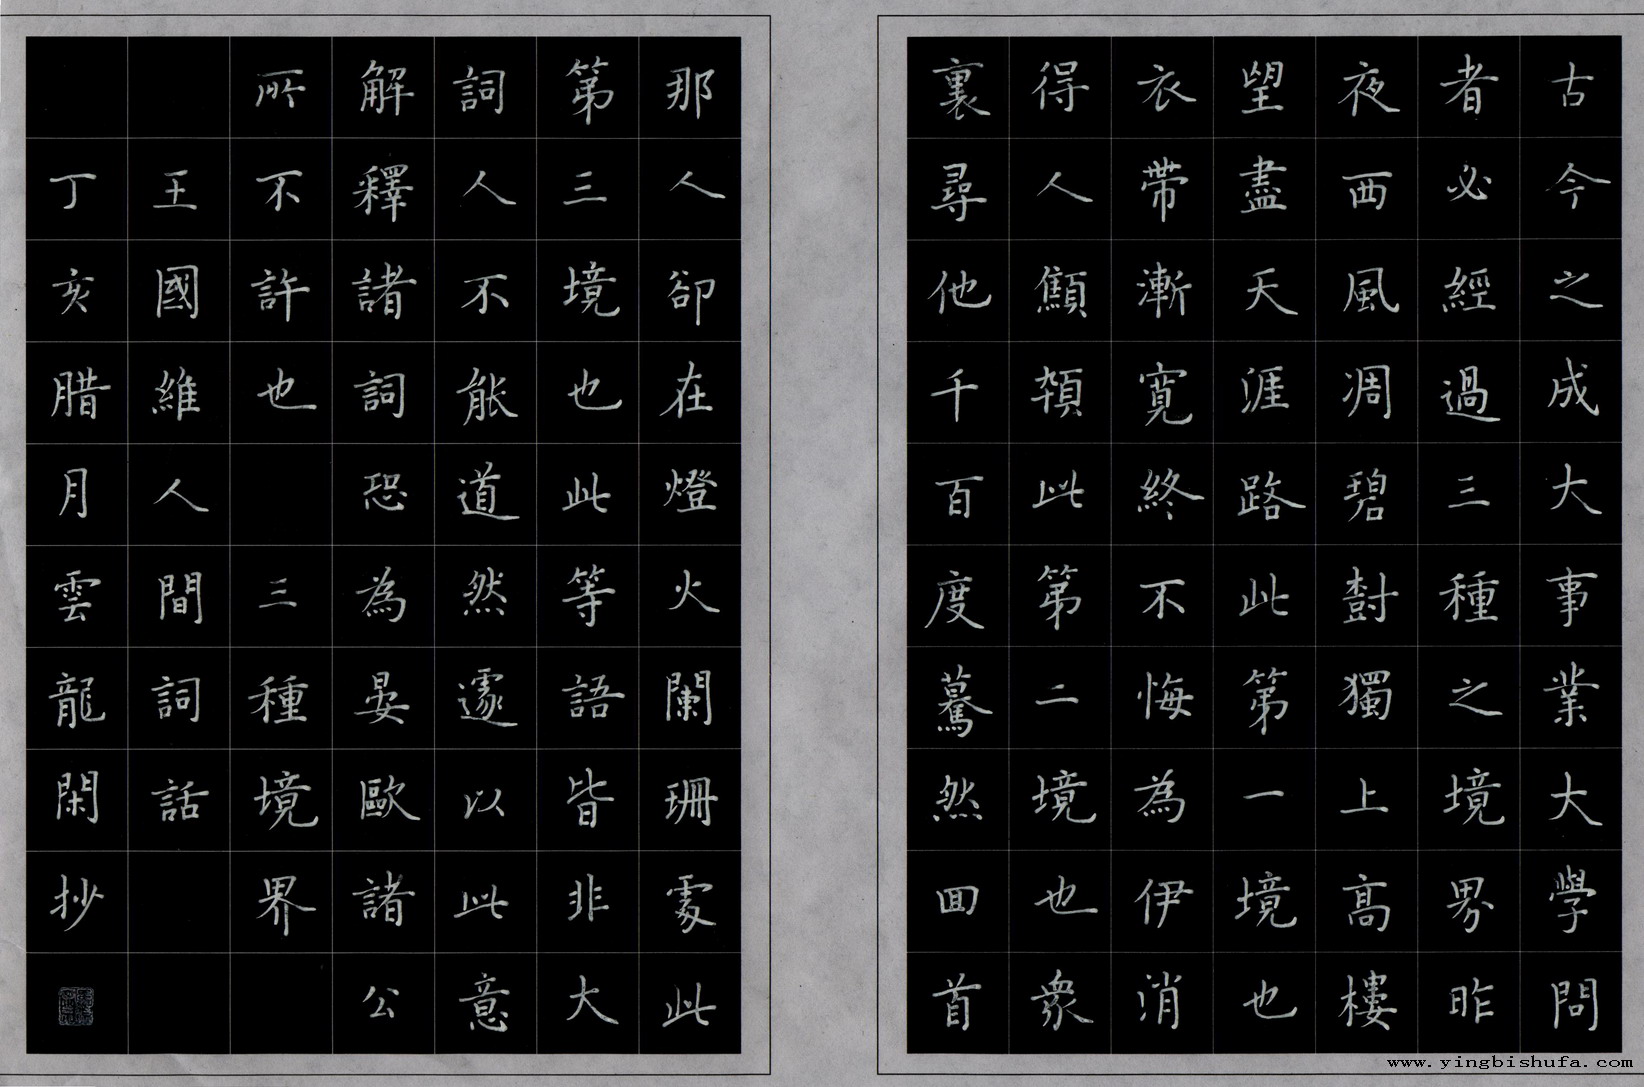 古今之成大事業大學問
者必經過三種之境界昨
夜西風凋碧樹獨上高樓
望盡天涯路此第一境也
衣帶漸寬終不悔為伊消
得人顦顇此第二境也衆
裏尋他千百度驀然回首
那人卻在燈火闌珊處此
第三境也此等語皆非大
詞人不能道然遽以此意
解釋諸詞恐為晏歐諸公
所不許也 三種境界
王國維人間詞話
丁亥腊月雲龍閑抄
www.yingbishufa.com